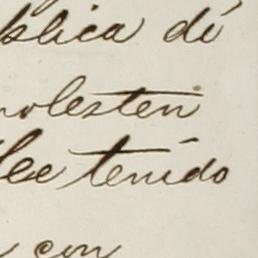 blica dé
molesten
lee tenido
con